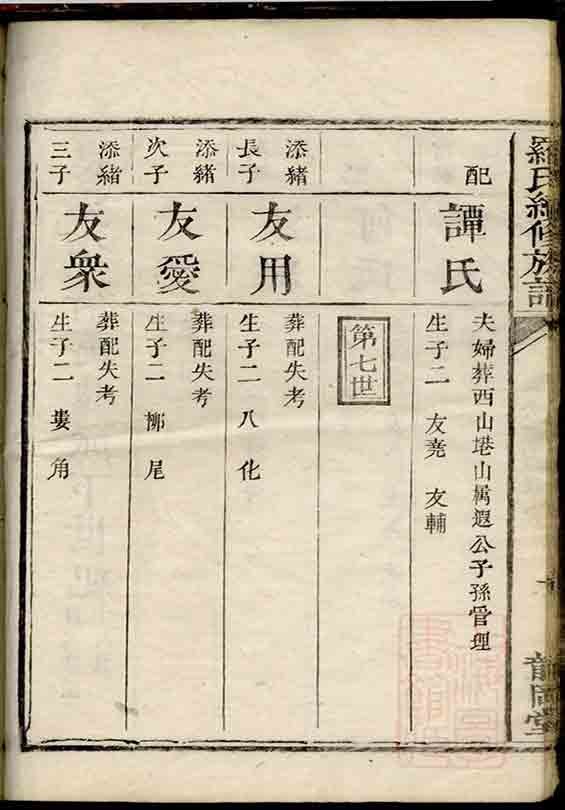 羅氏續修族譜
配
譚氏
夫婦葬西山塂山屬遐公子孫管理
生子二 友堯 友輔
第七世
添緒
長子
友用
葬配失考
生子二 八 化
添緒
次子
友愛
葬配失考
生子二 柳 尾
添緒
三子
友衆
葬配失考
生子二 婁 角